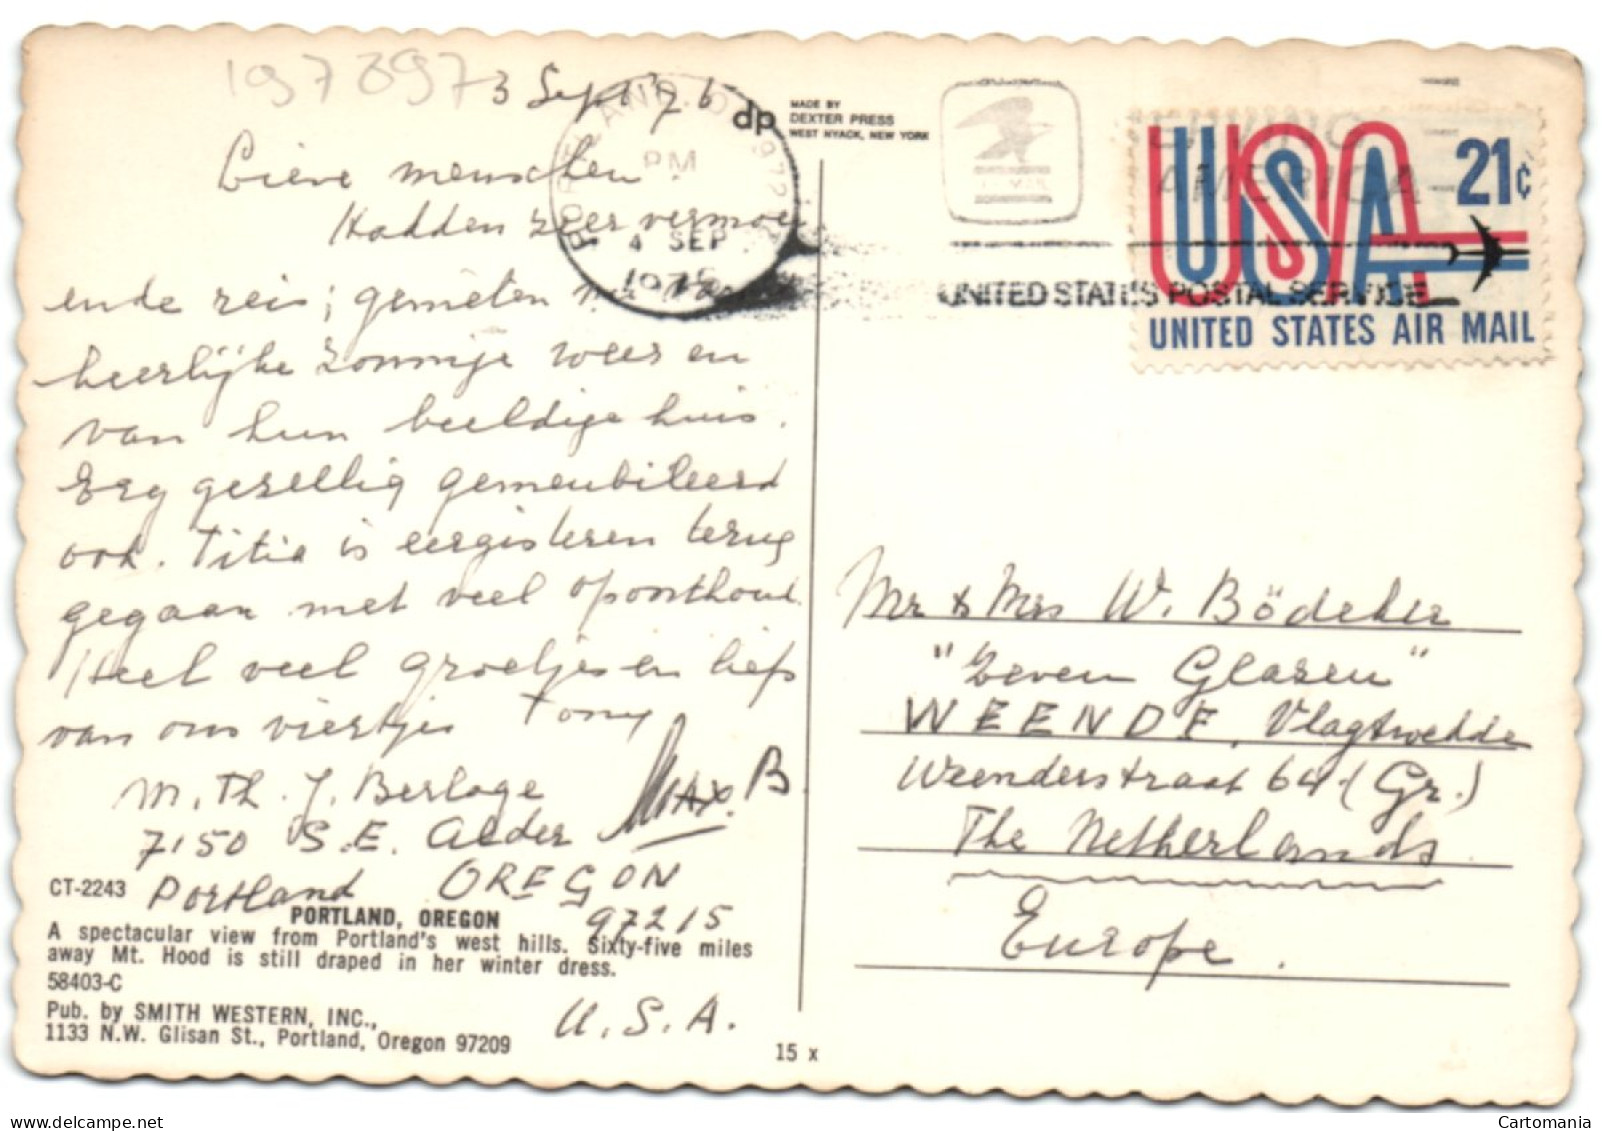 1973097
3 Sept '76
Lieve menschen.
Hadden zeer vermoei
ende reis; genieten nu van
heerlijke zonnige weer en
van hun beeldige huis.
Erg gezellig gemeubileerd
ook. Titia is eergisteren terug
gegaan met veel oponthoud.
Heel veel groetjes en liefs
van ons viertjes Tony
Max. B
M. Th. J. Berlage
7150 S.E. Alder
Portland OREGON
97215
U.S.A.
CT-2243
PORTLAND, OREGON
A spectacular view from Portland's west hills. Sixty-five miles
away Mt. Hood is still draped in her winter dress.
58403-C
Pub. by SMITH WESTERN, INC.,
1133 N.W. Glisan St., Portland, Oregon 97209
15 x
dp
MADE BY
DEXTER PRESS
WEST NYACK, NEW YORK
PORTLAND, O 972
PM
4 SEP
1976
U.S. MAIL
SERVING
AMERICA
UNITED STATES POSTAL SERVICE
USA 21c
UNITED STATES AIR MAIL
Mr & Mrs W. Bödeker
"Zeven Glazen"
WEENDE, Vlagtwedde
Weenderstraat 64 (Gr.)
The Netherlands
Europe.
Cartomania